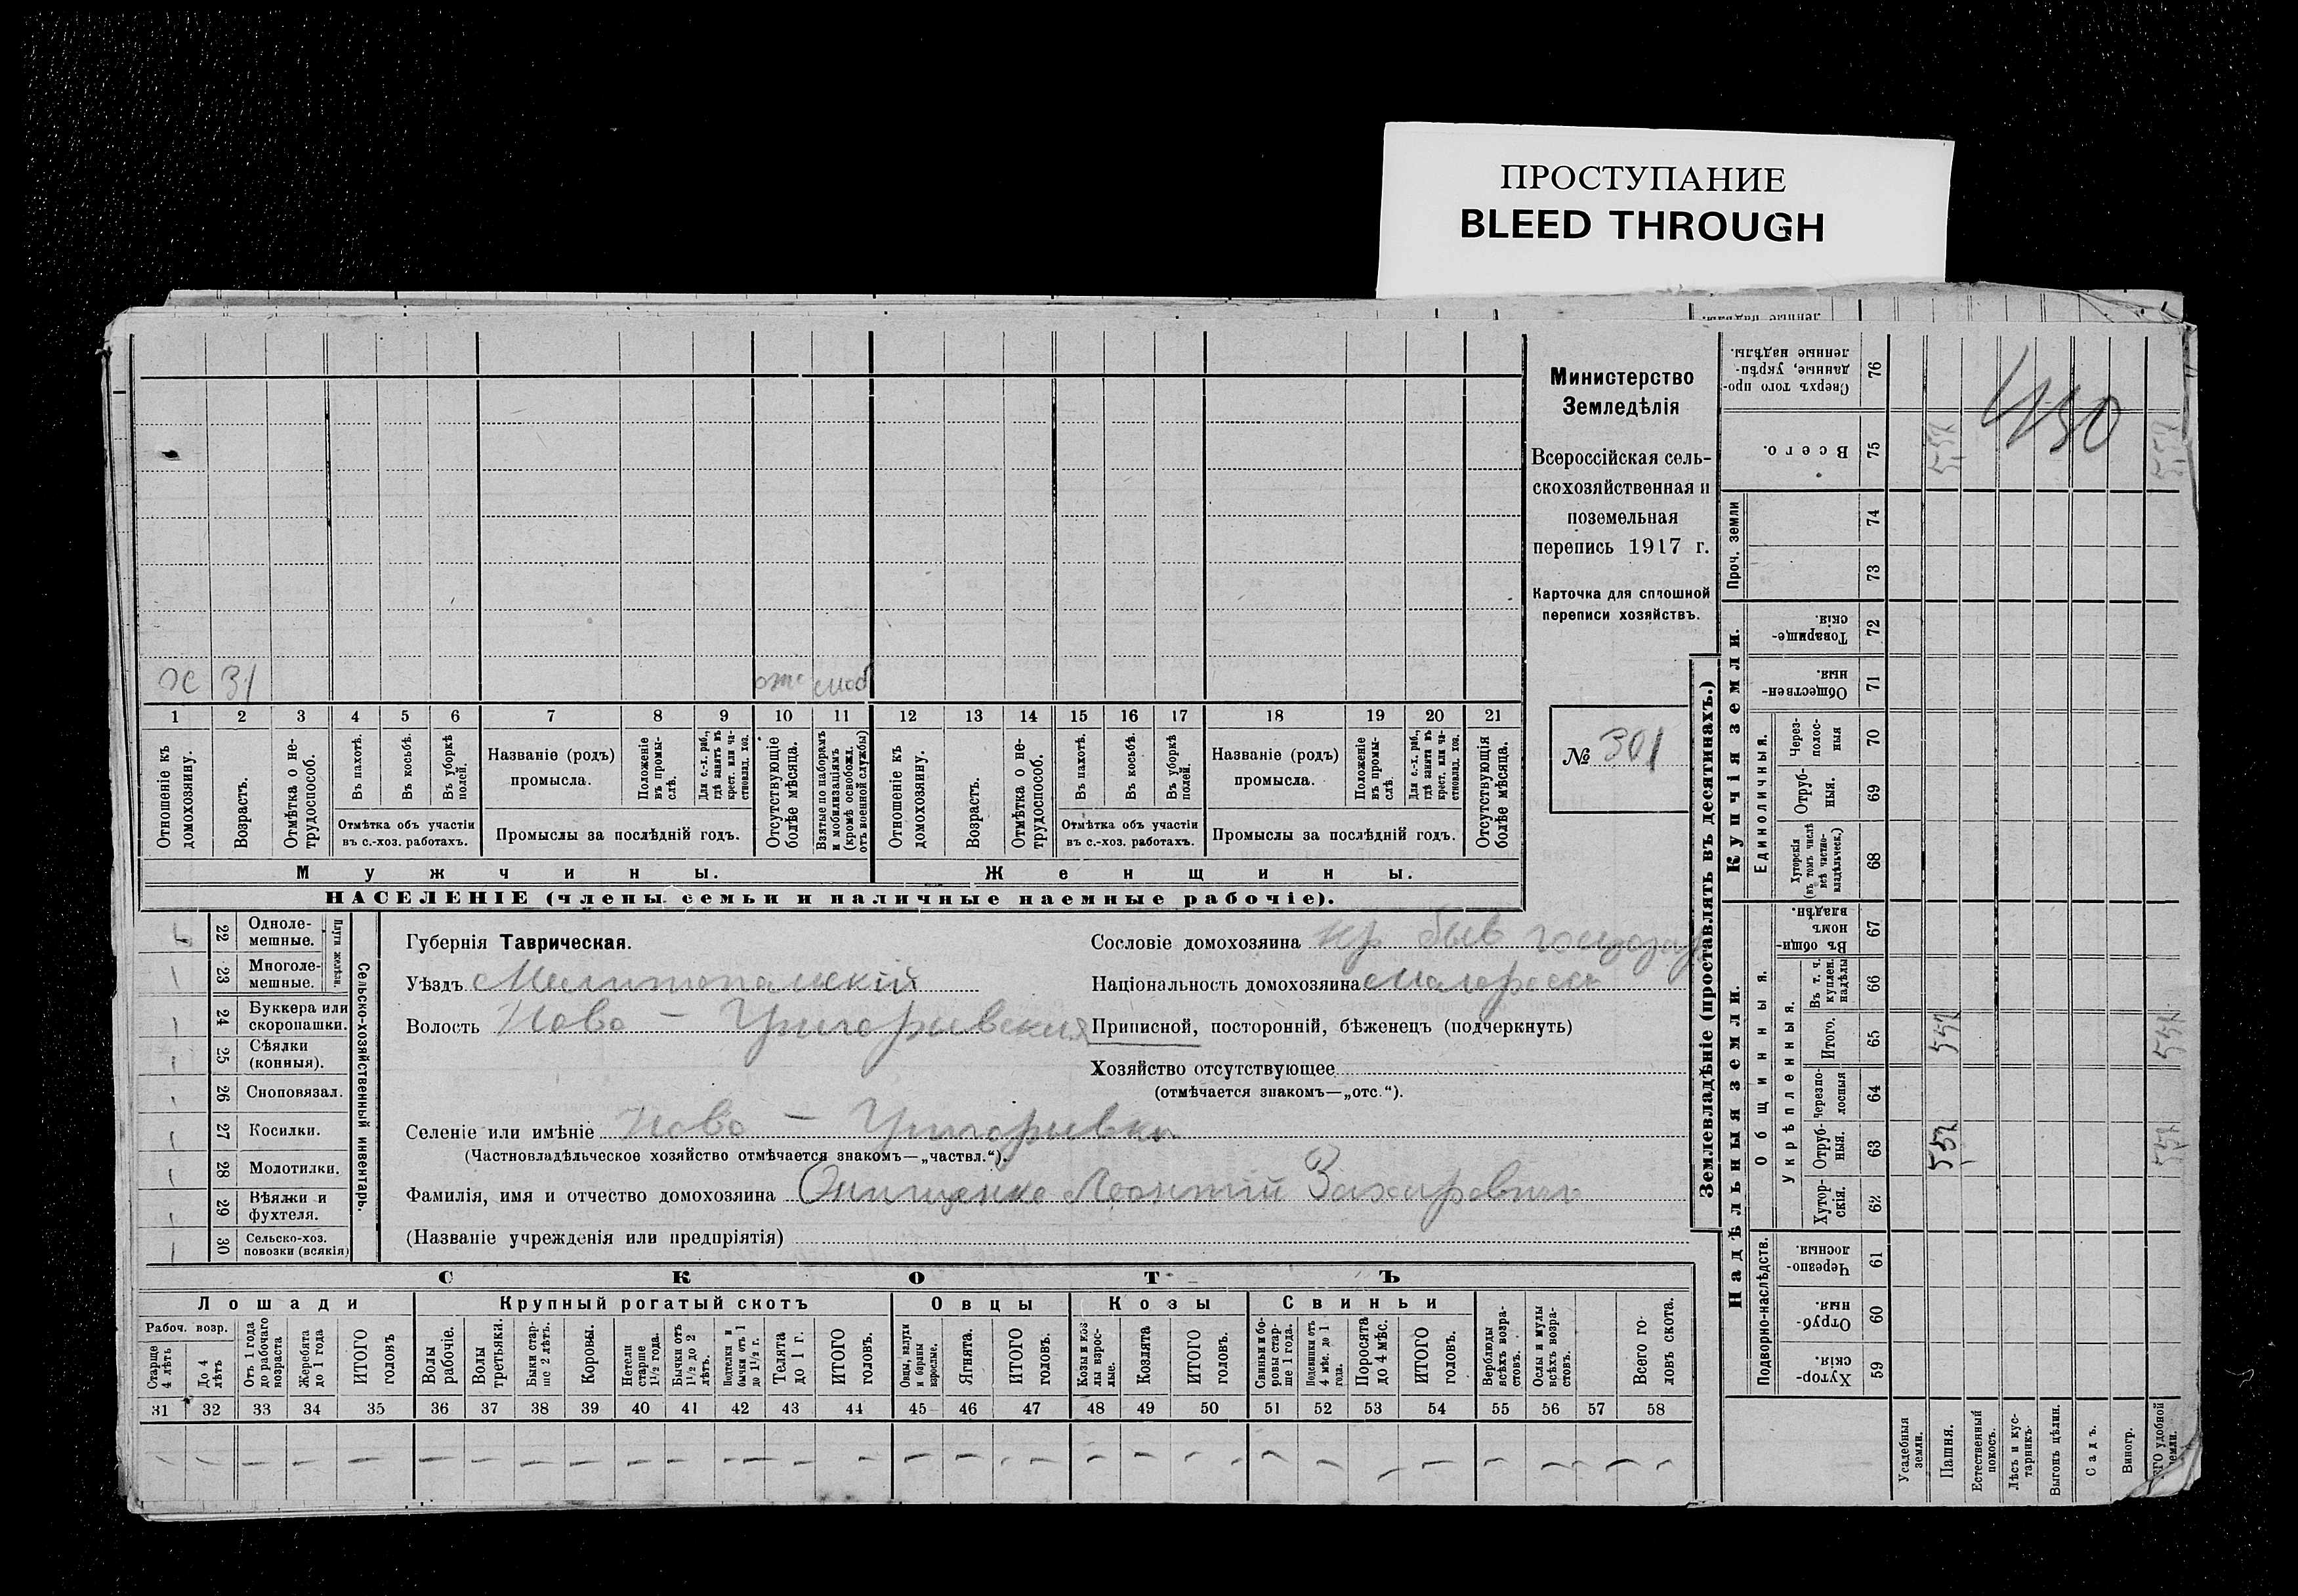 ПРОСТУПАНИЕ
BLEED THROUGH
Министерство
Земледѣлія
Всероссійская сель-
скохозяйственная и
поземельная
перепись 1917 г.
Карточка для сплошной
переписи хозяйствъ.
№ 301
х 31 отс моб
1 2 3 4 5 6 7 8 9 10 11 12 13 14 15 16 17 18 19 20 21
Отношеніе къ домохозяину.
Возрастъ.
Отмѣтка о не-трудоспособ.
Въ пахотѣ.
Въ косьбѣ.
Въ уборкѣ полей.
Отмѣтка объ участіи
въ с.-хоз. работахъ.
Названіе (родъ)
промысла.
Положеніе въ промы-слѣ.
Для с.-х. раб., гдѣ занятъ въ крест. или ча-стновлад. хоз.
Промыслы за послѣдній годъ.
Отсутствующіе болѣе мѣсяца.
Взятые по наборамъ и мобилизаціямъ (кромѣ освобожд. отъ военной службы)
Отношеніе къ домохозяину.
Возрастъ.
Отмѣтка о не-трудоспособ.
Въ пахотѣ.
Въ косьбѣ.
Въ уборкѣ полей.
Отмѣтка объ участіи
въ с.-хоз. работахъ.
Названіе (родъ)
промысла.
Положеніе въ промы-слѣ.
Для с.-х. раб., гдѣ занятъ въ крест. или ча-стновлад. хоз.
Промыслы за послѣдній годъ.
Отсутствующія болѣе мѣсяца.
Мужчины.
Женщины.
НАСЕЛЕНІЕ (члены семьи и наличные наемные рабочіе).
22 Одноле-мешные.
23 Многоле-мешные.
Плуги желѣзн.
24 Буккера или скоропашки.
25 Сѣялки (конныя).
26 Сноповязал.
27 Косилки.
28 Молотилки.
29 Вѣялки и фухтеля.
30 Сельско-хоз. повозки (всякія)
Сельско-хозяйственный инвентарь.
Губернія Таврическая.
Уѣздъ Мелитопольскій
Волость Ново - Григорьевская
Селеніе или имѣніе Ново - Григорьевка
(Частновладѣльческое хозяйство отмѣчается знакомъ—„частвл.“).
Фамилія, имя и отчество домохозяина Онищенко Леонтій Захаровичъ
(Названіе учрежденія или предпріятія)
Сословіе домохозяина кр быв госуд
Національность домохозяина малороссъ
Приписной, посторонній, бѣженецъ (подчеркнуть)
Хозяйство отсутствующее
(отмѣчается знакомъ—„отс.“).
СКОТЪ
Лошади
Крупный рогатый скотъ
Овцы
Козы
Свиньи
Рабоч. возр.
Старше 4 лѣтъ
До 4 лѣтъ
Отъ 1 года до рабочаго возраста
Жеребята до 1 года
ИТОГО головъ
Волы рабочіе.
Волы третьяки.
Быки стар-ше 2 лѣтъ.
Коровы.
Нетели старше 1½ года.
Бычки отъ 1½ до 2 лѣтъ.
Подтелки и бычки отъ 1 до 1½ г.
Телята до 1 г.
ИТОГО головъ.
Овцы, валухи и бараны взрослые.
Ягнята.
ИТОГО головъ.
Козы и коз лы взрос-лые.
Козлята
ИТОГО головъ.
Свиньи и бо-ровы стар-ше 1 года.
Подсвинки отъ 4 мѣс. до 1 года.
Поросята до 4 мѣс.
ИТОГО головъ.
Верблюды всѣхъ возра-стовъ.
Ослы и мулы всѣхъ возра-стовъ.
Всего го-ловъ скота.
31 32 33 34 35 36 37 38 39 40 41 42 43 44 45 46 47 48 49 50 51 52 53 54 55 56 57 58
Землевладѣніе (проставлять въ десятинахъ.)
Надѣльныя земли.
Купчія земли.
Подворно-наслѣдств.
Общинныя.
Укрѣпленныя.
Единоличныя.
Проч. земли
Хутор-скія. 59
Отруб-ныя. 60
Черезпо-лосныя. 61
Хутор-скія. 62
Отруб-ныя. 63
Черезпо-лосныя 64
Итого. 65
Въ т. ч. куплен. надѣлы 66
Въ общи-номъ владѣн. 67
Хуторскія (въ томъ числѣ всѣ частно-владѣльческ.) 68
Отруб-ныя. 69
Через-полос-ныя 70
Обществен-ныя. 71
Товарище-скія. 72
73
74
Всего. 75
Сверхъ того про-данные, укрѣп-ленные надѣлы. 76
Усадебныя земли.
Пашня.
Естественный покосъ.
Лѣсъ и кус-тарникъ.
Выгонъ цѣлин.
Садъ.
Виногр.